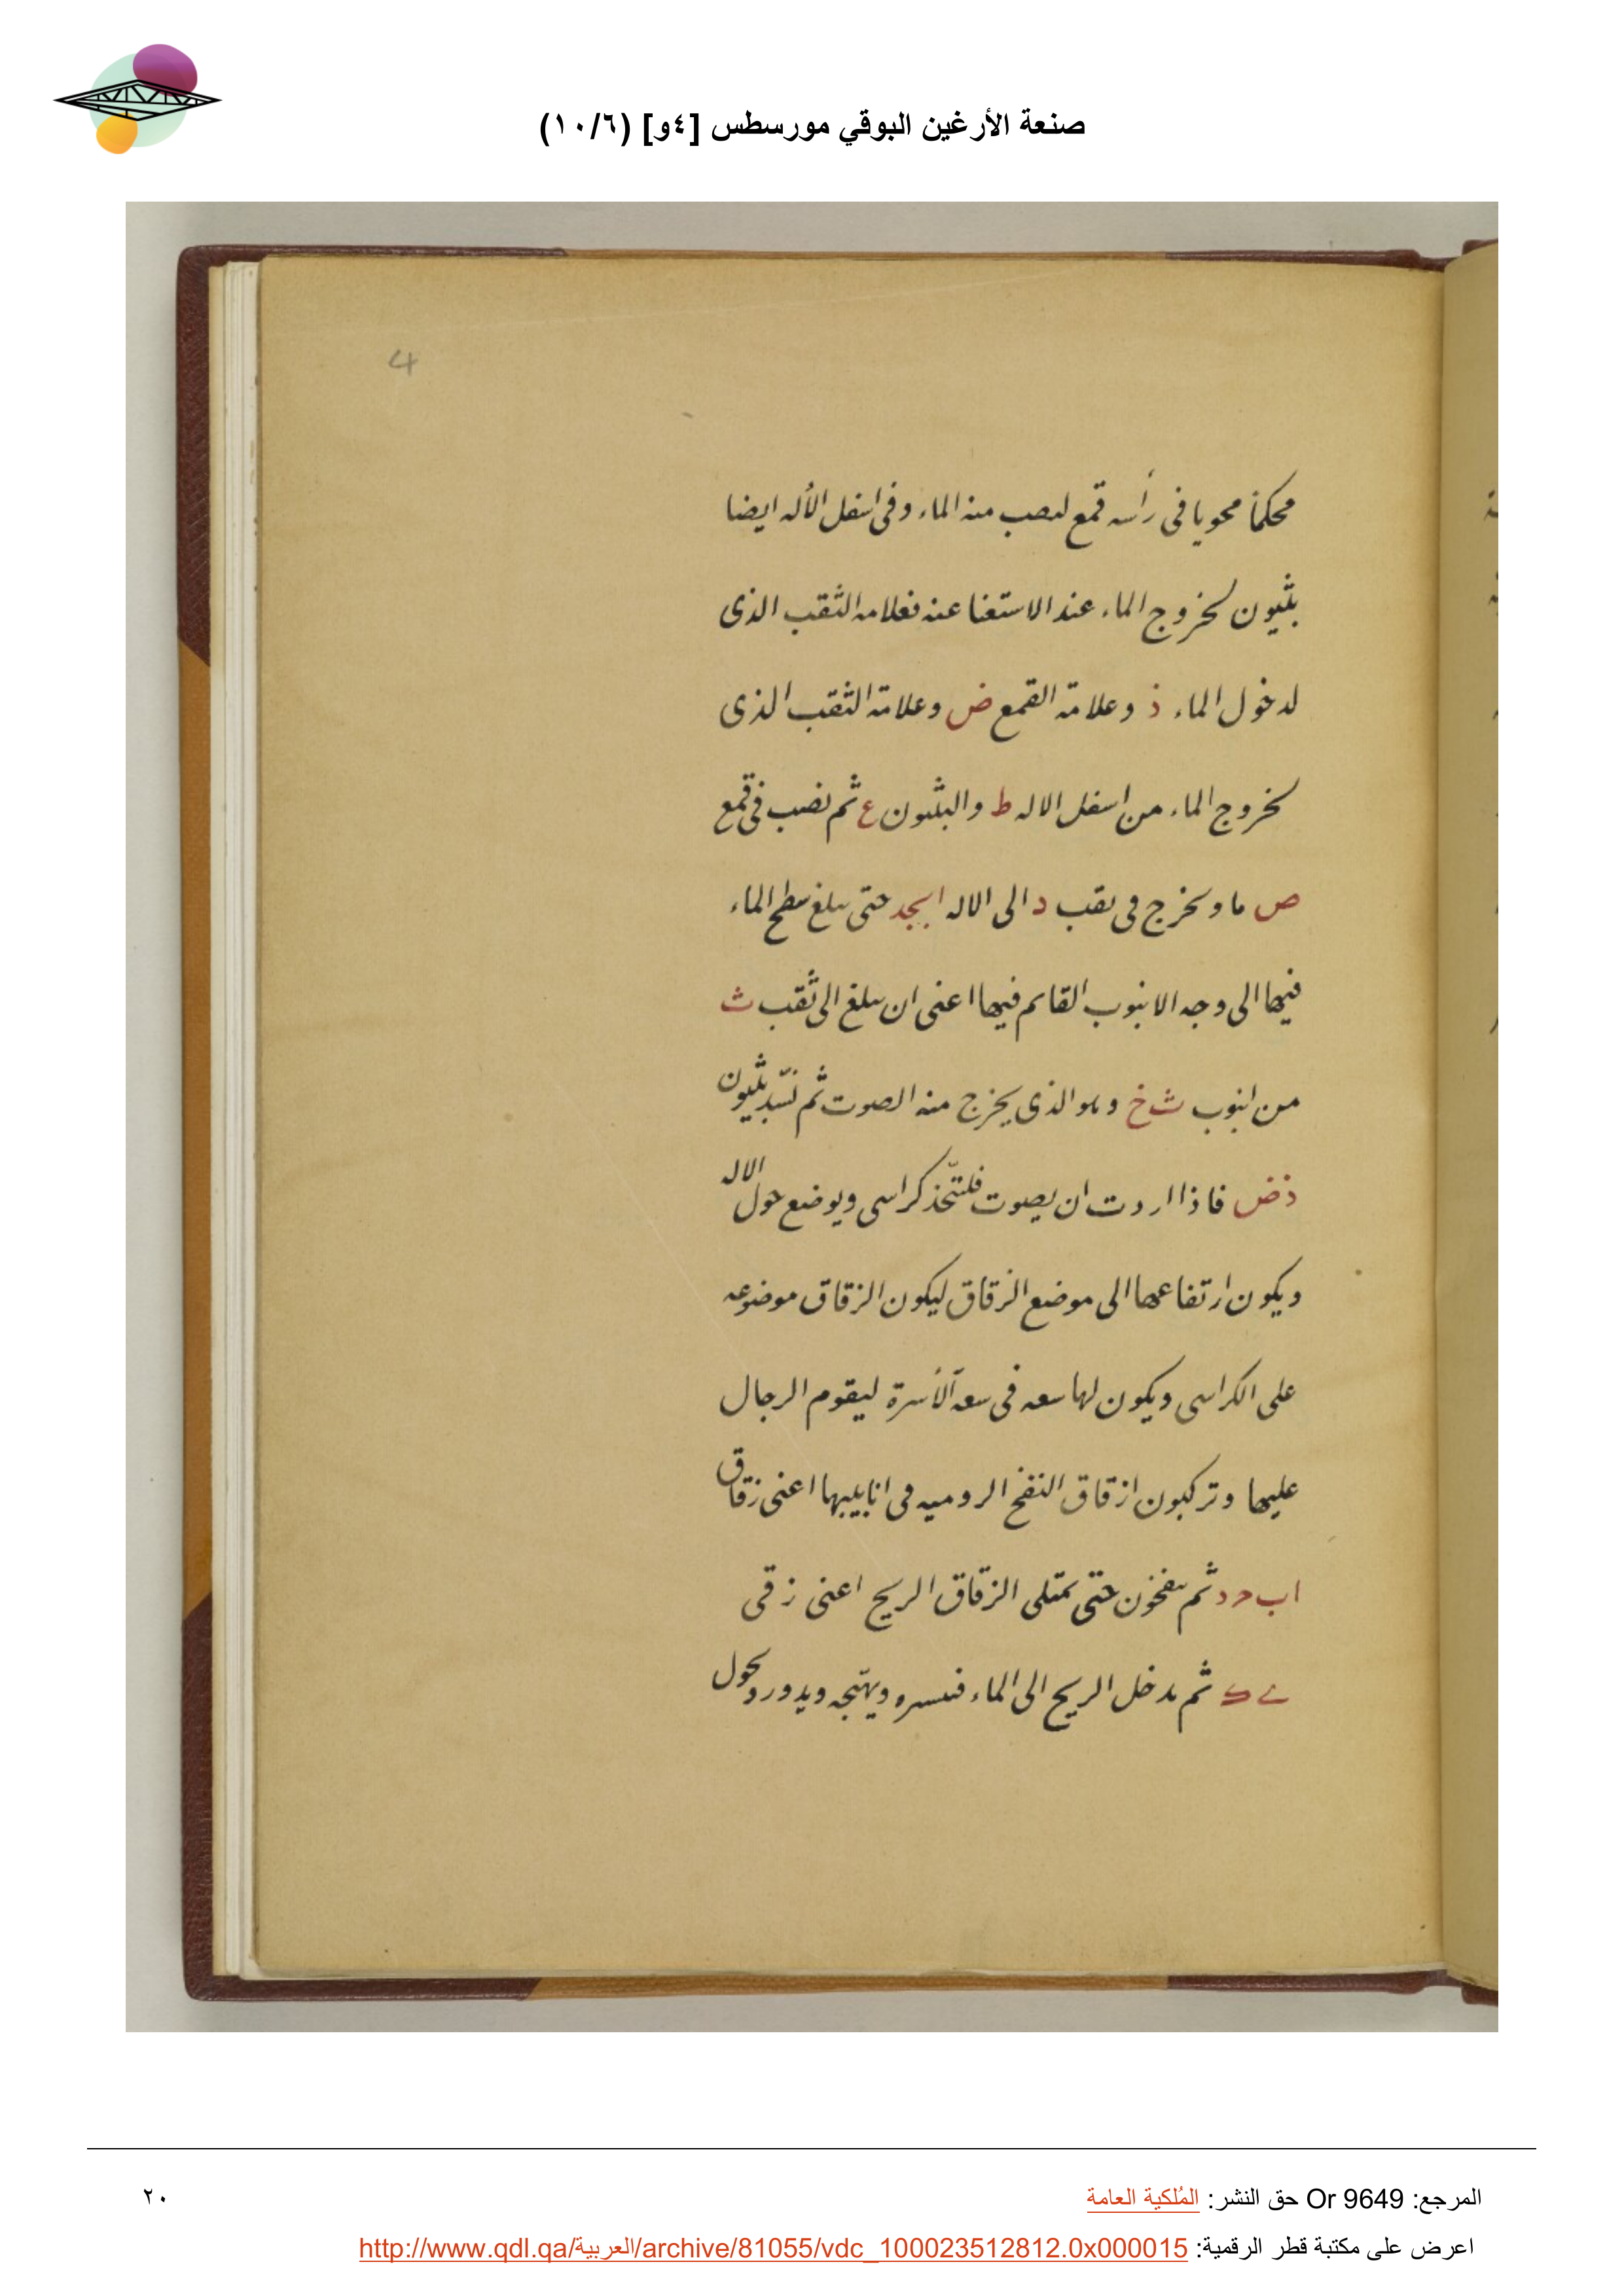 صنعة الأرغين البوقي مورسطس [٤و] (١٠/٦)
4
محكماً محويا فى رأسه قمع لنصب منه الماء وفى اسفل الأله ايضا
بثيون لخروج الماء عند الاستغنا عنه فعلامه الثقب الذى
لدخول الماء ذ وعلامة القمع ض وعلامة الثقب الذى
لخروج الماء من اسفل الاله ط والبثيون ع ثم نصب فى قمع
ص ما ويخرج فى ثقب د الى الاله ابجد حتى يبلغ سطح الماء
فيها الى وجه الانبوب القائم فيها اعنى ان يبلغ الى ثقب ث
من انبوب ث خ وهو الذى يخرج منه الصوت ثم نسّد بثيون
ذض فاذا اردت ان يصوت فلتتّخذ كراسى ويوضع حول الاله
ويكون ارتفاعها الى موضع الزقاق ليكون الزقاق موضوعه
على الكراسى ويكون لها سعه فى سعة الأسرة ليقوم الرجال
عليها وتركبون ازقاق النفخ الروميه فى انابيبها اعنى زقاق
اب ح د ثم ينفخون حتى تمتلى الزقاق الريح اعنى زقى
ى ك ثم يدخل الريح الى الماء ويهيّجه ويدور ويحول
المرجع: Or 9649 حق النشر: المُلكية العامة
٢٠
اعرض على مكتبة قطر الرقمية: http://www.qdl.qa/العربية/archive/81055/vdc_100023512812.0x000015